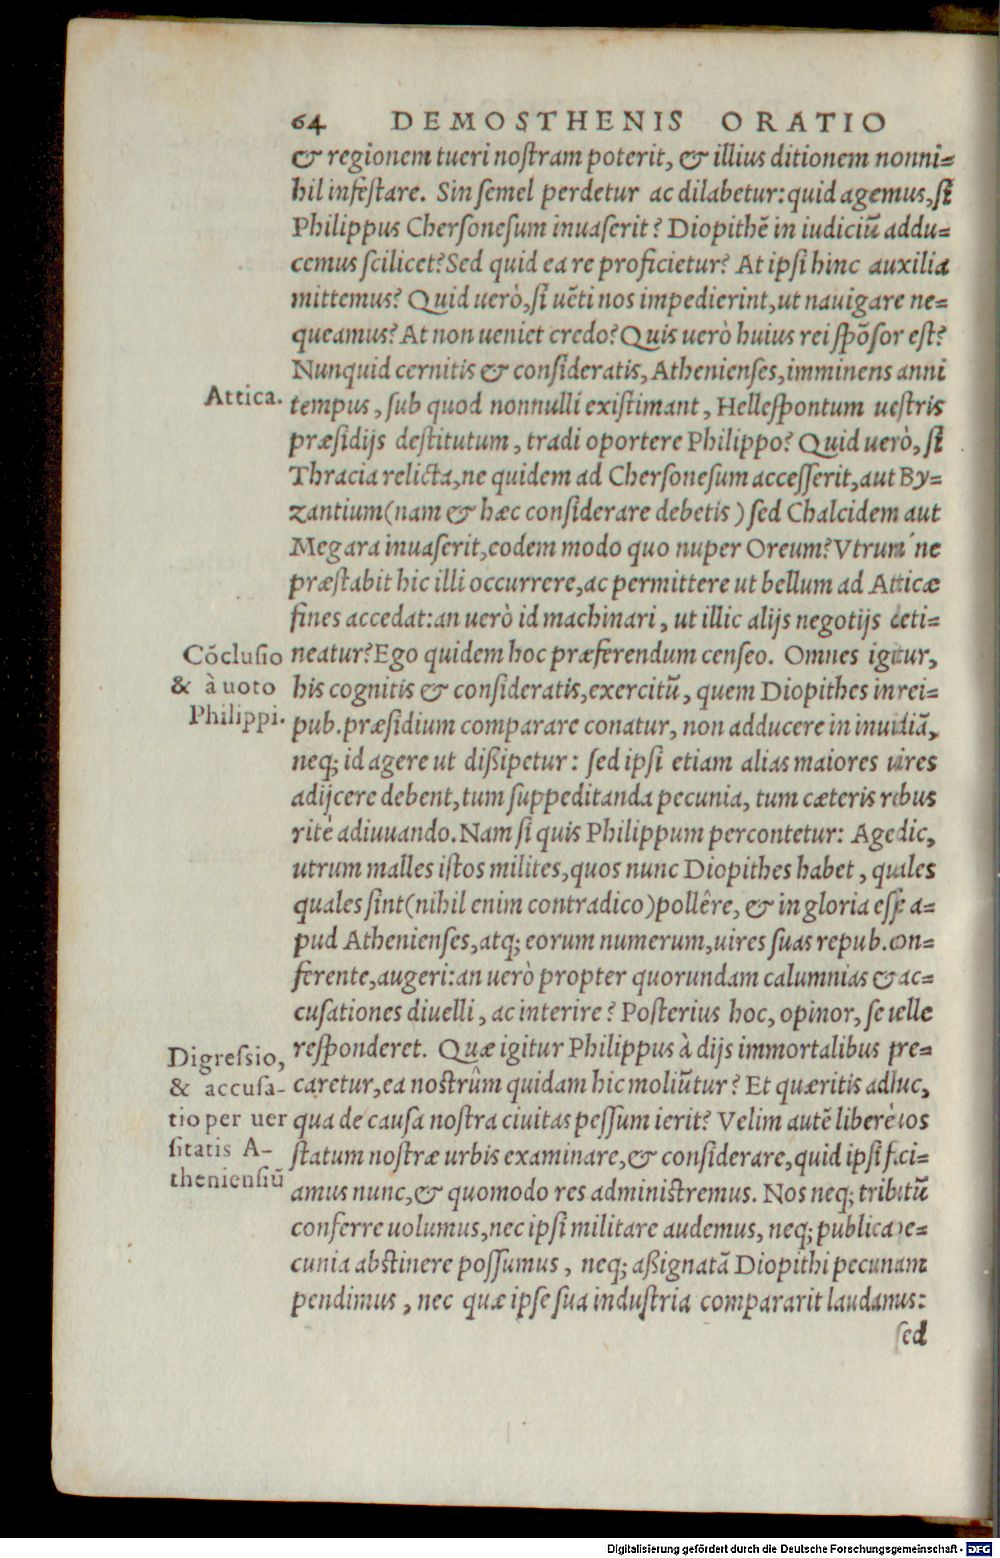 64 DEMOSTHENIS ORATIO
& regionem tueri nostram poterit, & illius ditionem nonni-
hil infestare. Sin semel perdetur ac dilabetur: quid agemus, si
Philippus Chersonesum inuaserit? Diopithẽ in iudiciũ addu-
cemus scilicet? Sed quid ea re proficietur? At ipsi hinc auxilia
mittemus? Quid uerò, si uẽti nos impedierint, ut nauigare ne-
queamus? At non ueniet credo? Quis uerò huius rei spõsor est?
Nunquid cernitis & consideratis, Athenienses, imminens anni
Attica.
tempus, sub quod nonnulli existimant, Hellespontum uestris
præsidijs destitutum, tradi oportere Philippo? Quid uerò, si
Thracia relicta, ne quidem ad Chersonesum accesserit, aut By-
zantium (nam & hæc considerare debetis) sed Chalcidem aut
Megara inuaserit, eodem modo quo nuper Oreum? Vtrum ne
præstabit hic illi occurrere, ac permittere ut bellum ad Atticæ
fines accedat: an uerò id machinari, ut illic alijs negotijs deti-
Cõclusio
& à uoto
Philippi.
neatur? Ego quidem hoc præferendum censeo. Omnes igitur,
his cognitis & consideratis, exercitũ, quem Diopithes in rei-
pub. præsidium comparare conatur, non adducere in inuidiã,
neq; id agere ut dißipetur: sed ipsi etiam alias maiores uires
adijcere debent, tum suppeditanda pecunia, tum cæteris rebus
ritè adiuuando. Nam si quis Philippum percontetur: Age dic,
utrum malles istos milites, quos nunc Diopithes habet, quales
quales sint (nihil enim contradico) pollêre, & in gloria esse a-
pud Athenienses, atq; eorum numerum, uires suas repub. con-
ferente, augeri: an uerò propter quorundam calumnias & ac-
cusationes diuelli, ac interire? Posterius hoc, opinor, se uelle
Digressio,
& accusa-
tio per uer
sitatis A-
theniensiũ
responderet. Quæ igitur Philippus à dijs immortalibus pre-
caretur, ea nostrûm quidam hic moliũtur? Et quæritis adhuc,
qua de causa nostra ciuitas pessum ierit? Velim autẽ liberè uos
statum nostræ urbis examinare, & considerare, quid ipsi faci-
amus nunc, & quomodo res administremus. Nos neq; tributũ
conferre uolumus, nec ipsi militare audemus, neq; publica pe-
cunia abstinere possumus, neq; aßignatã Diopithi pecuniam
pendimus, nec quæ ipse sua industria compararit laudamus:
sed
Digitalisierung gefördert durch die Deutsche Forschungsgemeinschaft - DFG